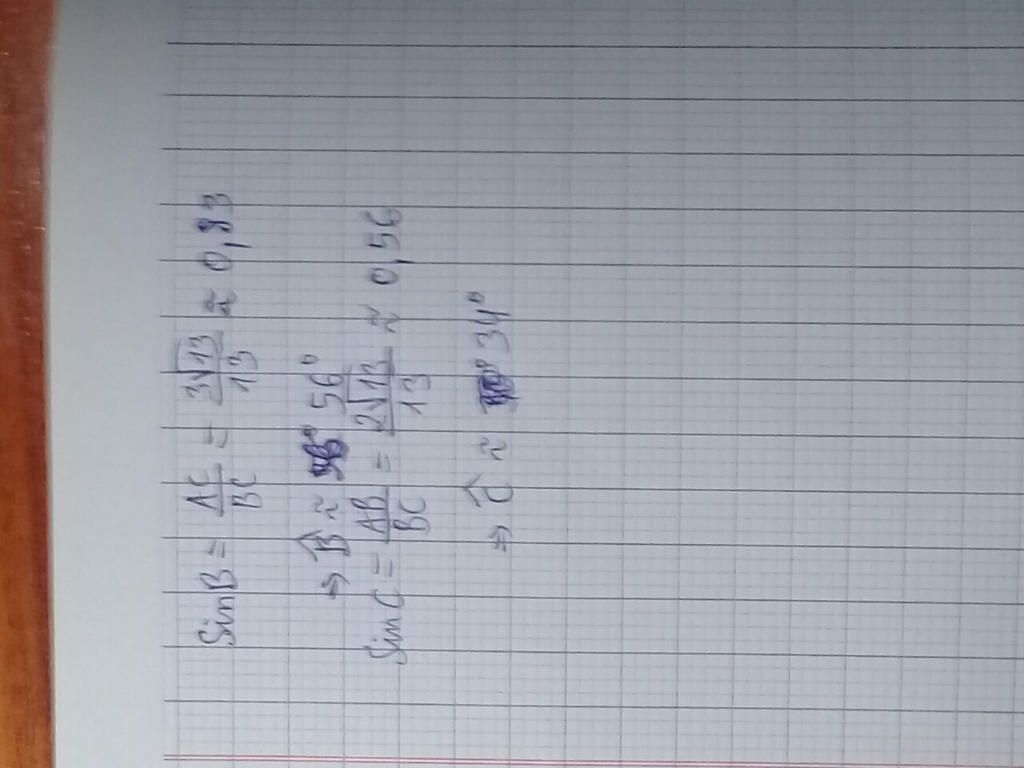 SinB = AC/BC = 3√13/13 ≈ 0,83
⇒ B̂ ≈ 56°
SinC = AB/BC = 2√13/13 ≈ 0,56
⇒ Ĉ ≈ 34°